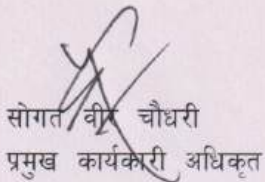 सोगत वीर चौधरी
प्रमुख कार्यकारी अधिकृत